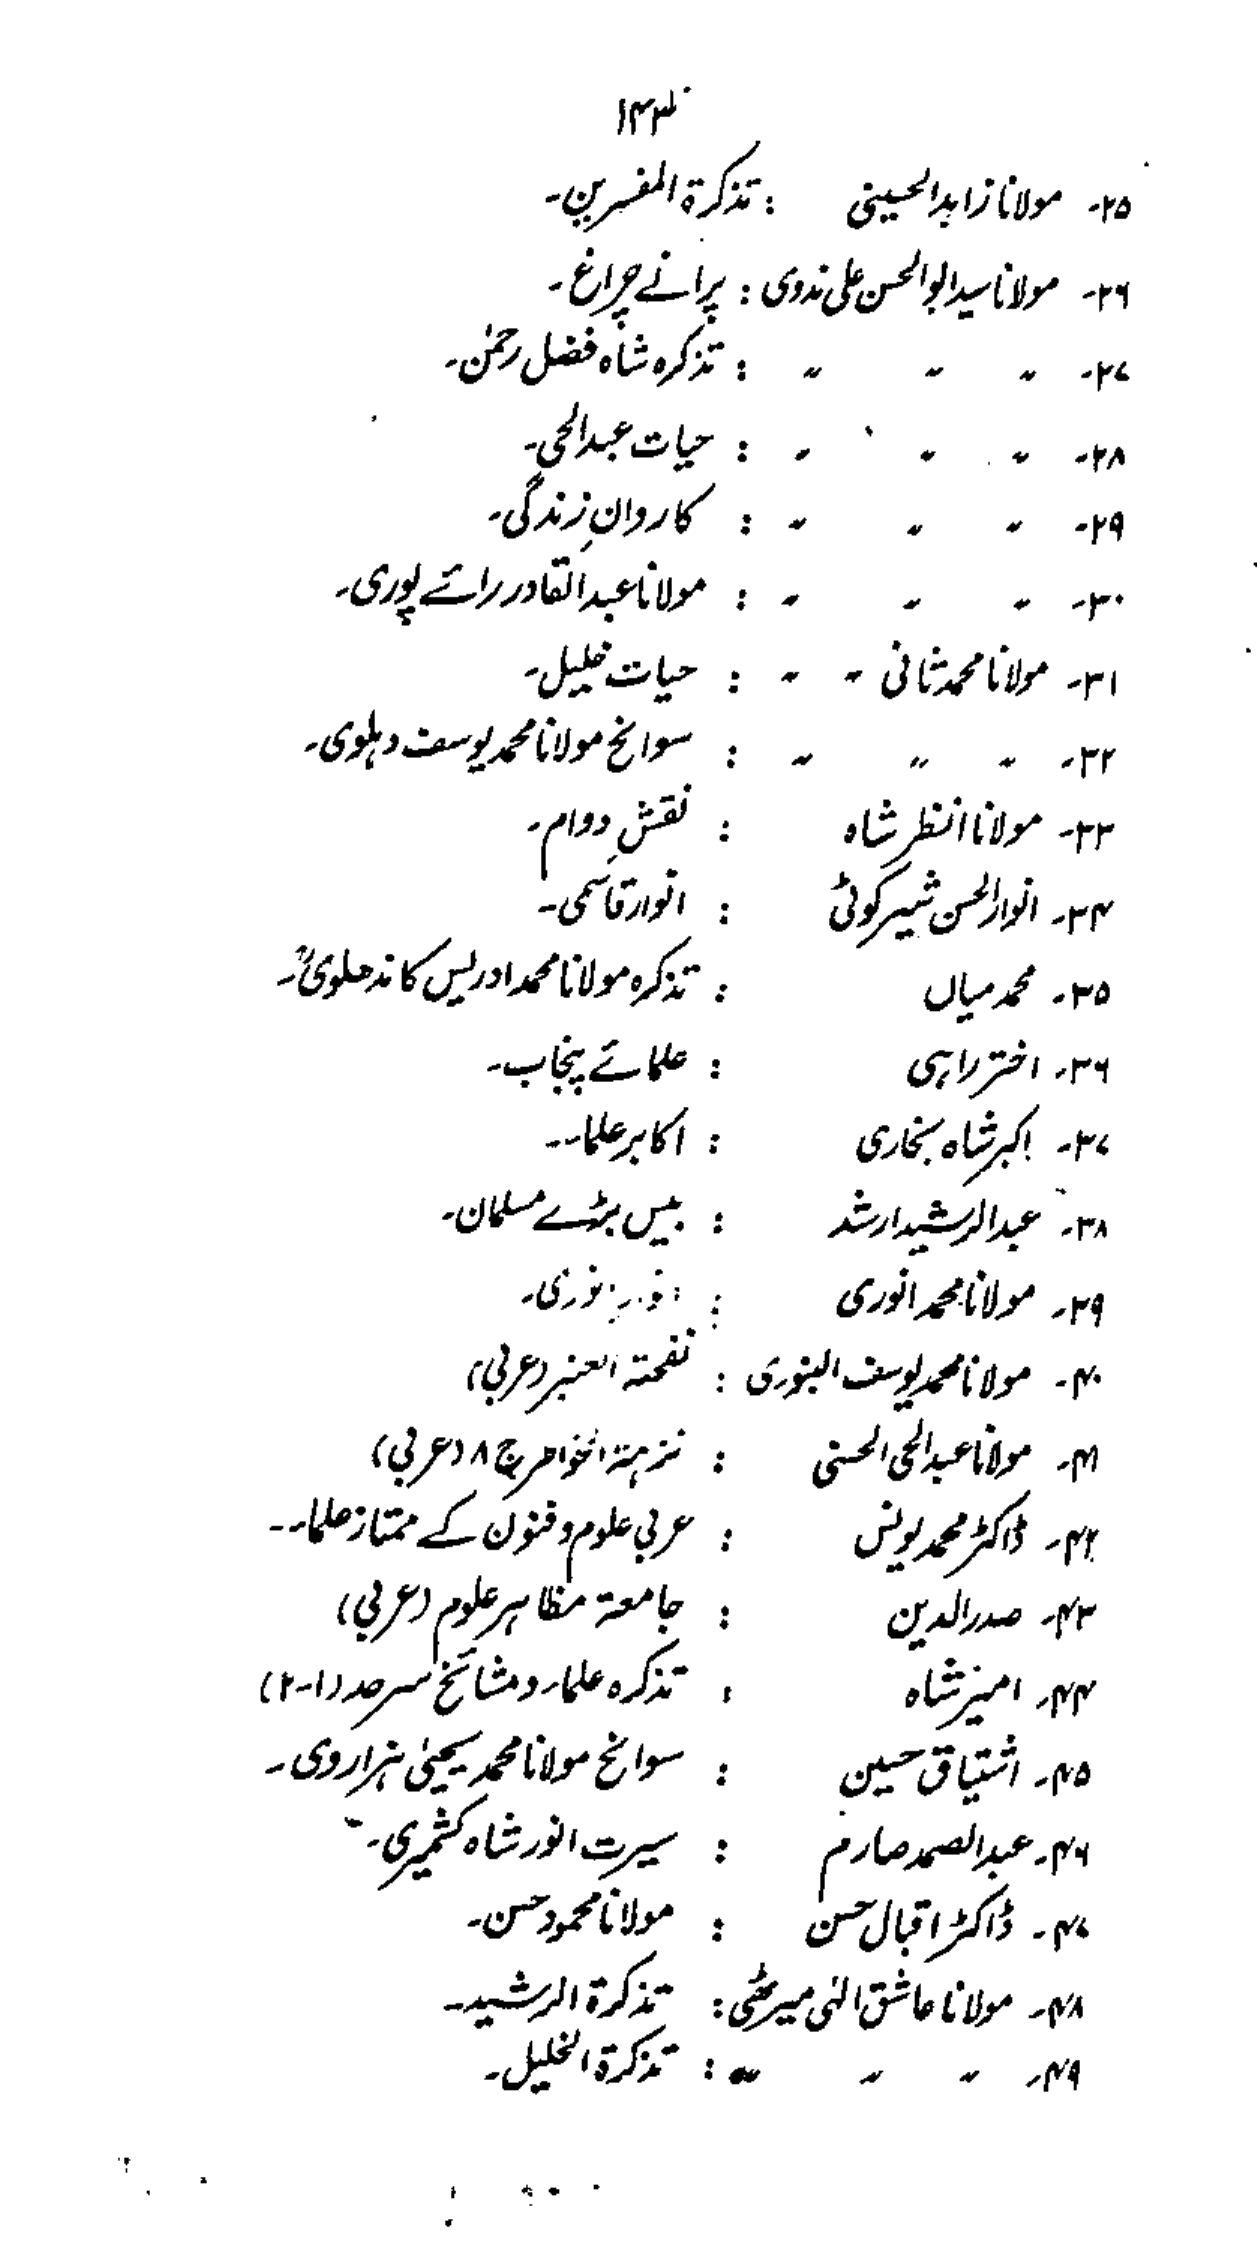 ۱۴۳
۲۵۔ مولانا زاہد الحسینی : تذکرۃ المفسرین۔
۲۶۔ مولانا سید ابوالحسن علی ندوی : پرانے چراغ۔
۲۷۔ ״ ״ ״ : تذکرہ شاہ فضل رحمٰن۔
۲۸۔ ״ ״ ״ : حیات عبدالحی۔
۲۹۔ ״ ״ ״ : کاروانِ زندگی۔
۳۰۔ ״ ״ ״ : مولانا عبدالقادر رائے پوری۔
۳۱۔ مولانا محمد ثانی ״ ״ : حیات خلیل۔
۳۲۔ ״ ״ ״ : سوانح مولانا محمد یوسف دہلوی۔
۳۳۔ مولانا انظر شاہ : نقشِ دوام۔
۳۴۔ انوار الحسن شیرکوٹی : انوار قاسمی۔
۳۵۔ محمد میاں : تذکرہ مولانا محمد ادریس کاندھلویؒ۔
۳۶۔ اختر راہی : علمائے پنجاب۔
۳۷۔ اکبر شاہ بخاری : اکابر علماء۔
۳۸۔ عبدالرشید ارشد : بیس بڑے مسلمان۔
۳۹۔ مولانا محمد انوری : انوری۔
۴۰۔ مولانا محمد یوسف البنوری : نفحۃ العنبر (عربی)
۴۱۔ مولانا عبدالحی الحسنی : نزہۃ الخواطر ج ۸ (عربی)
۴۲۔ ڈاکٹر محمد یونس : عربی علوم و فنون کے ممتاز علماء۔
۴۳۔ صدرالدین : جامعۃ مظاہر علوم (عربی)
۴۴۔ امیر شاہ : تذکرہ علماء و مشائخ سرحد (۱۔۲)
۴۵۔ اشتیاق حسین : سوانح مولانا محمد یحییٰ ہزاروی۔
۴۶۔ عبدالصمد صارم : سیرت انور شاہ کشمیری۔
۴۷۔ ڈاکٹر اقبال حسن : مولانا محمود حسن۔
۴۸۔ مولانا عاشق الٰہی میرٹھی : تذکرۃ الرشید۔
۴۹۔ ״ ״ ״ : تذکرۃ الخلیل۔